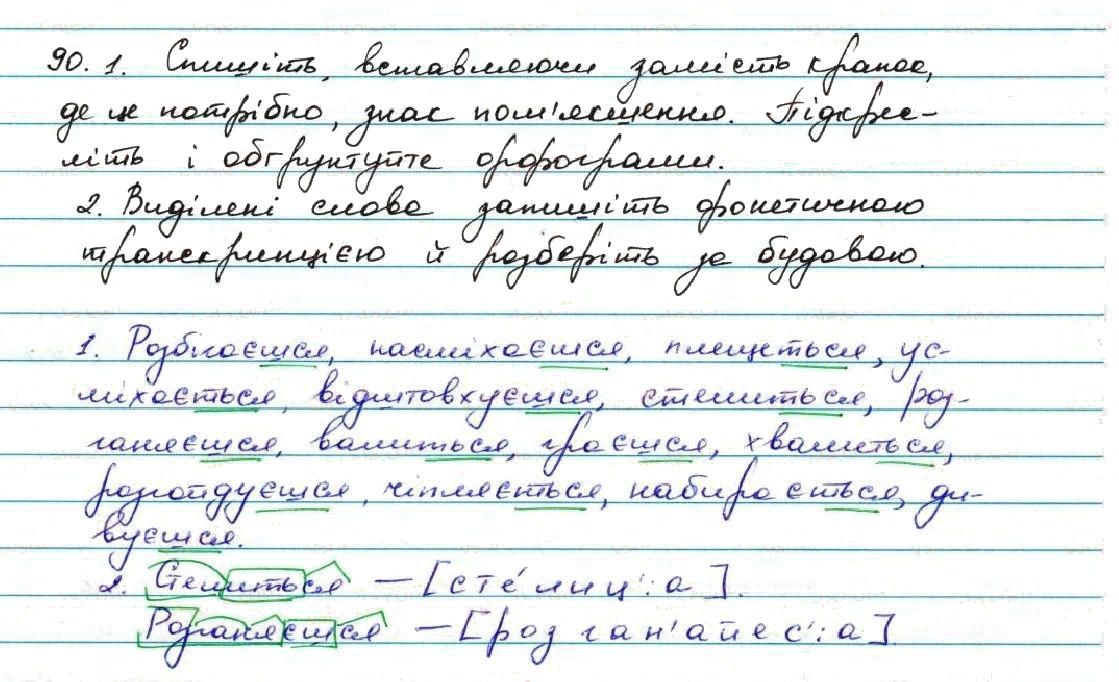 90. 1. Спишіть, вставляючи замість крапок,
де це потрібно, знак пом'якшення. Підкрес-
літь і обґрунтуйте орфограми.
2. Виділені слова запишіть фонетичною
транскрипцією й розберіть за будовою.
1. Розбігаєшся, насміхаєшся, плещеться, ус-
міхається, відштовхуєшся, стелиться, роз-
ганяєшся, валиться, граєшся, хвалиться,
розгойдуєшся, чіпляється, набирається, ди-
вуєшся.
2. Стелиться – [сте́лиц':а].
Розганяєшся – [розган'айес':а]